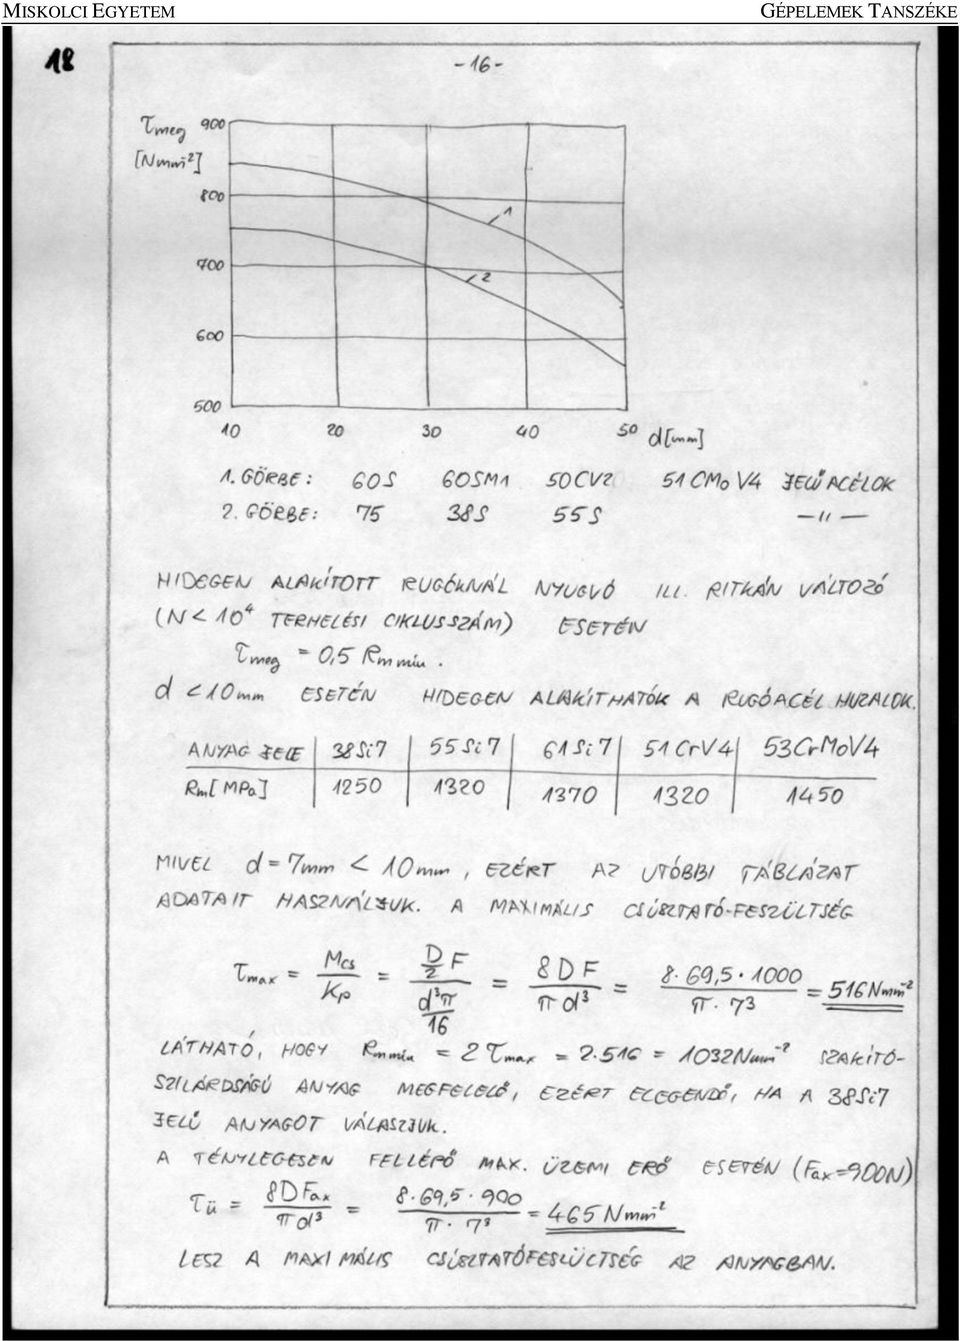 MISKOLCI EGYETEM GÉPELEMEK TANSZÉKE
18 -16-
τmeg 900
[Nmm⁻²]
800
1
700
2
600
500
10 20 30 40 50 d[mm]
1. GÖRBE: 60S 60SM1 50CV2 51CMoV4 JELŰ ACÉLOK
2. GÖRBE: 75 38S 55S —〃—
HIDEGEN ALAKÍTOTT RUGÓKNÁL NYUGVÓ ILL. RITKÁN VÁLTOZÓ
(N < 10⁴ TERHELÉSI CIKLUSSZÁM) ESETÉN
τmeg = 0,5 Rm min .
d < 10mm ESETÉN HIDEGEN ALAKÍTHATÓK A RUGÓACÉL HUZALOK.
ANYAG JELE | 38Si7 | 55Si7 | 61Si7 | 51CrV4 | 53CrMoV4
Rm[MPa] | 1250 | 1320 | 1370 | 1320 | 1450
MIVEL d = 7mm < 10mm, EZÉRT AZ UTÓBBI TÁBLÁZAT
ADATAIT HASZNÁLJUK. A MAXIMÁLIS CSÚSZTATÓ-FESZÜLTSÉG
τmax = Mcs / Kp = (D/2 F) / (d³π/16) = 8DF / πd³ = 8·69,5·1000 / π·7³ = 516 Nmm⁻²
LÁTHATÓ, HOGY Rm min = 2τmax = 2·516 = 1032 Nmm⁻² SZAKÍTÓ-
SZILÁRDSÁGÚ ANYAG MEGFELELŐ, EZÉRT ELEGENDŐ, HA A 38Si7
JELŰ ANYAGOT VÁLASZJUK.
A TÉNYLEGESEN FELLÉPŐ MAX. ÜZEMI ERŐ ESETÉN (Fax=900N)
τü = 8DFax / πd³ = 8·69,5·900 / π·7³ = 465 Nmm⁻²
LESZ A MAXIMÁLIS CSÚSZTATÓFESZÜLTSÉG AZ ANYAGBAN.